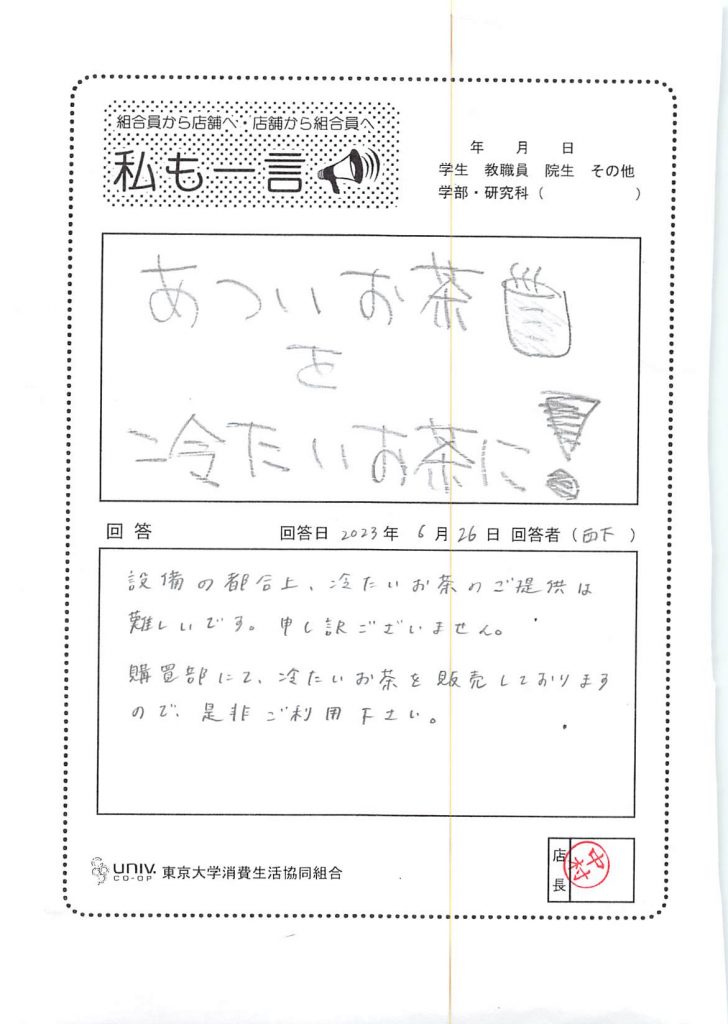 組合員から店舗へ・店舗から組合員へ
私も一言
年 月 日
学生 教職員 院生 その他
学部・研究科( )
あついお茶
を
冷たいお茶に!
回答 回答日 2023年 6月26日 回答者( 西下 )
設備の都合上、冷たいお茶のご提供は
難しいです。申し訳ございません。
購買部にて、冷たいお茶を販売しております
ので、是非ご利用下さい。
店長 中村
UNIV. CO-OP 東京大学消費生活協同組合